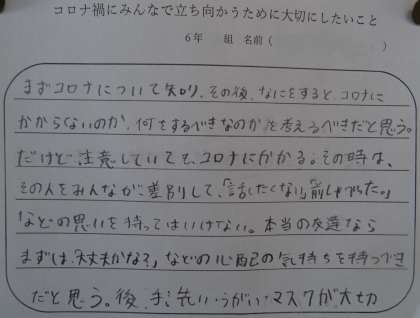 コロナ禍にみんなで立ち向かうために大切にしたいこと
6年 組 名前( )
まずコロナについて知り、その後、なにをすると、コロナに
かからないのか、何をするべきなのかを考えるべきだと思う。
だけど注意していても、コロナにかかる。その時は、
その人をみんなが差別して、「話したくない」
などの思いを持ってはいけない。本当の友達なら
まずは、「大丈夫かな?」などの心配の気持ちを持つべき
だと思う。後、手洗い・うがい・マスクが大切